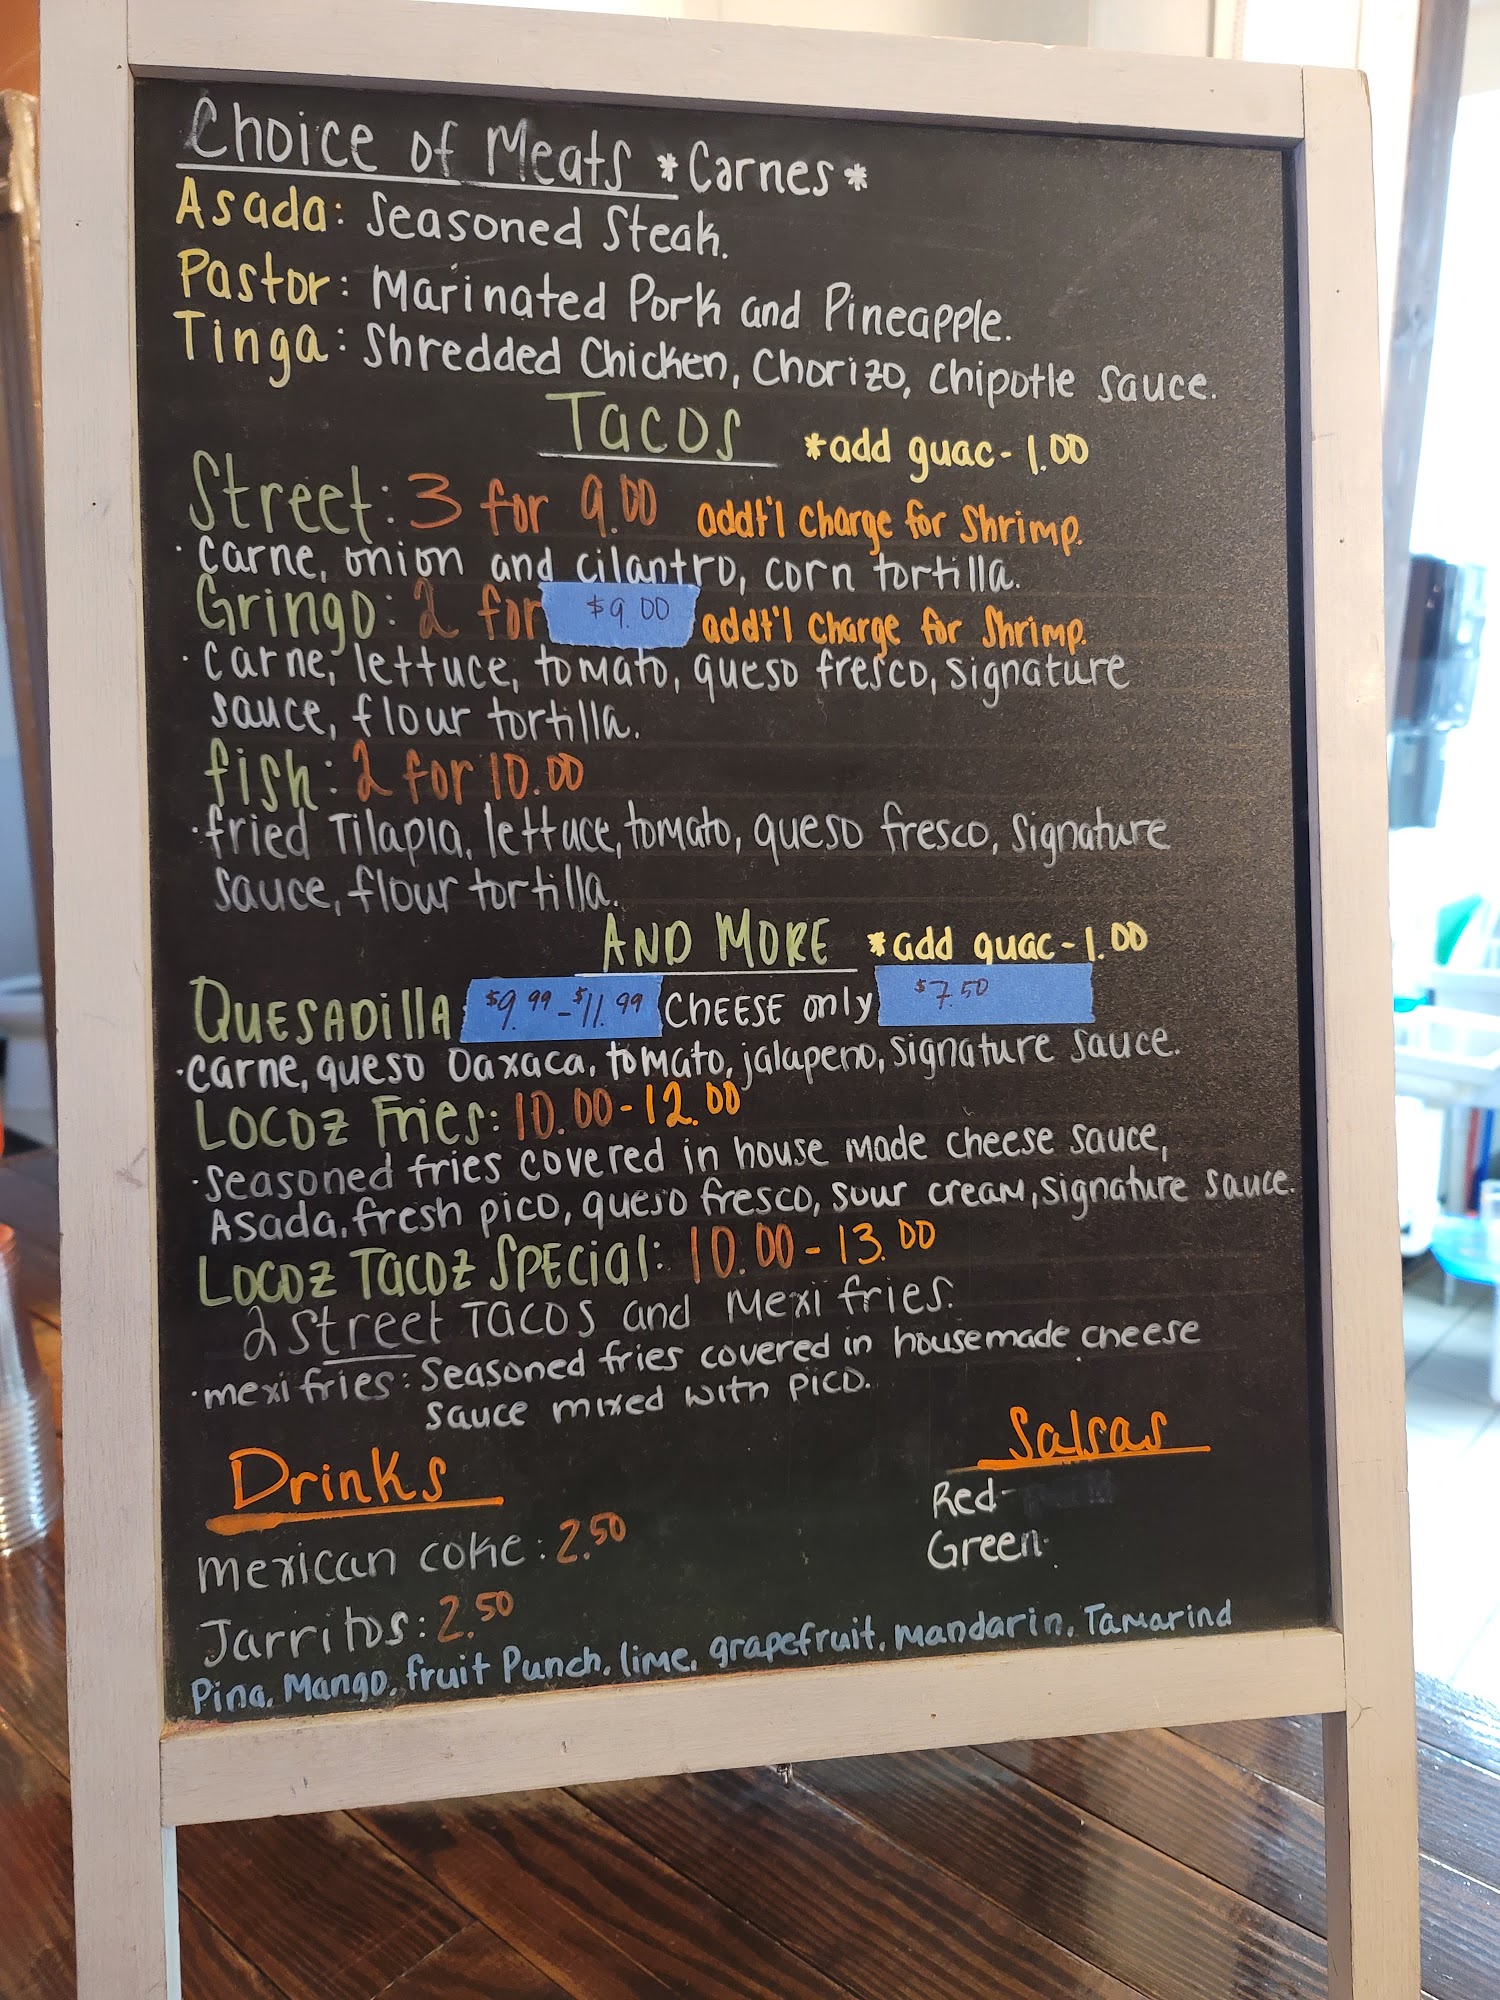 Choice of Meats *Carnes*
Asada: Seasoned Steak.
Pastor: Marinated Pork and Pineapple.
Tinga: Shredded Chicken, Chorizo, Chipotle Sauce.
Tacos *add guac- 1.00
Street: 3 for 9.00 addt'l Charge for Shrimp.
·Carne, onion and cilantro, corn tortilla.
Gringo: 2 for $9.00 addt'l Charge for Shrimp.
·Carne, lettuce, tomato, queso fresco, signature
sauce, flour tortilla.
fish: 2 for 10.00
·fried Tilapia, lettuce, tomato, queso fresco, signature
sauce, flour tortilla.
AND MORE *add guac- 1.00
Quesadilla $9.99-$11.99 Cheese only $7.50
·carne, queso Oaxaca, tomato, jalapeno, signature sauce.
Locoz Fries: 10.00-12.00
·Seasoned fries covered in house made cheese sauce,
Asada, fresh pico, queso fresco, sour cream, signature sauce.
Locoz Tacoz Special: 10.00-13.00
2 Street Tacos and Mexi fries.
·mexi fries: Seasoned fries covered in housemade cheese
sauce mixed with pico.
Drinks
Mexican coke: 2.50
Jarritos: 2.50
Pina, Mango, fruit Punch, lime, grapefruit, mandarin, Tamarind
Salsas
Red-
Green-